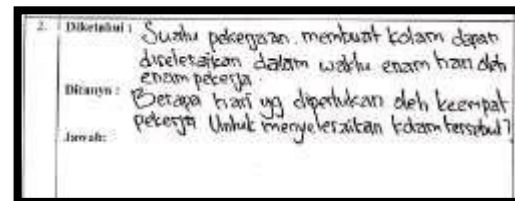 2. Diketahui : Suatu pekerjaan membuat kolam dapat
diselesaikan dalam waktu enam hari oleh
enam pekerja.
Ditanya : Berapa hari yg diperlukan oleh keempat
pekerja Untuk menyelesaikan kolam tersebut?
Jawab: